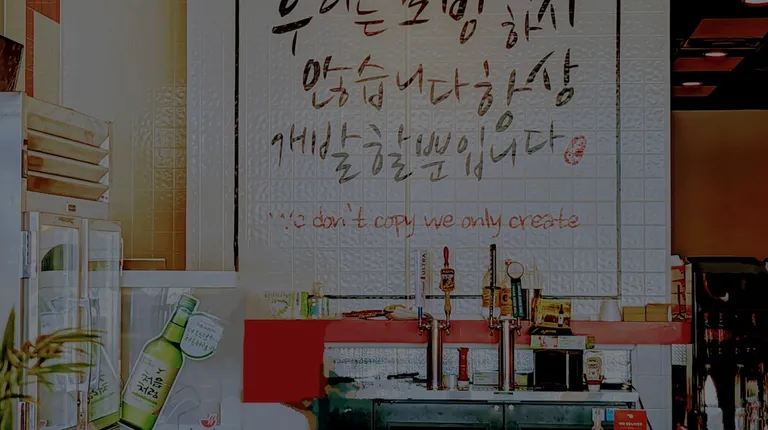 우리는 모방하지
않습니다 항상
개발할뿐입니다
We don't copy we only create
ULTRA
처음
처럼